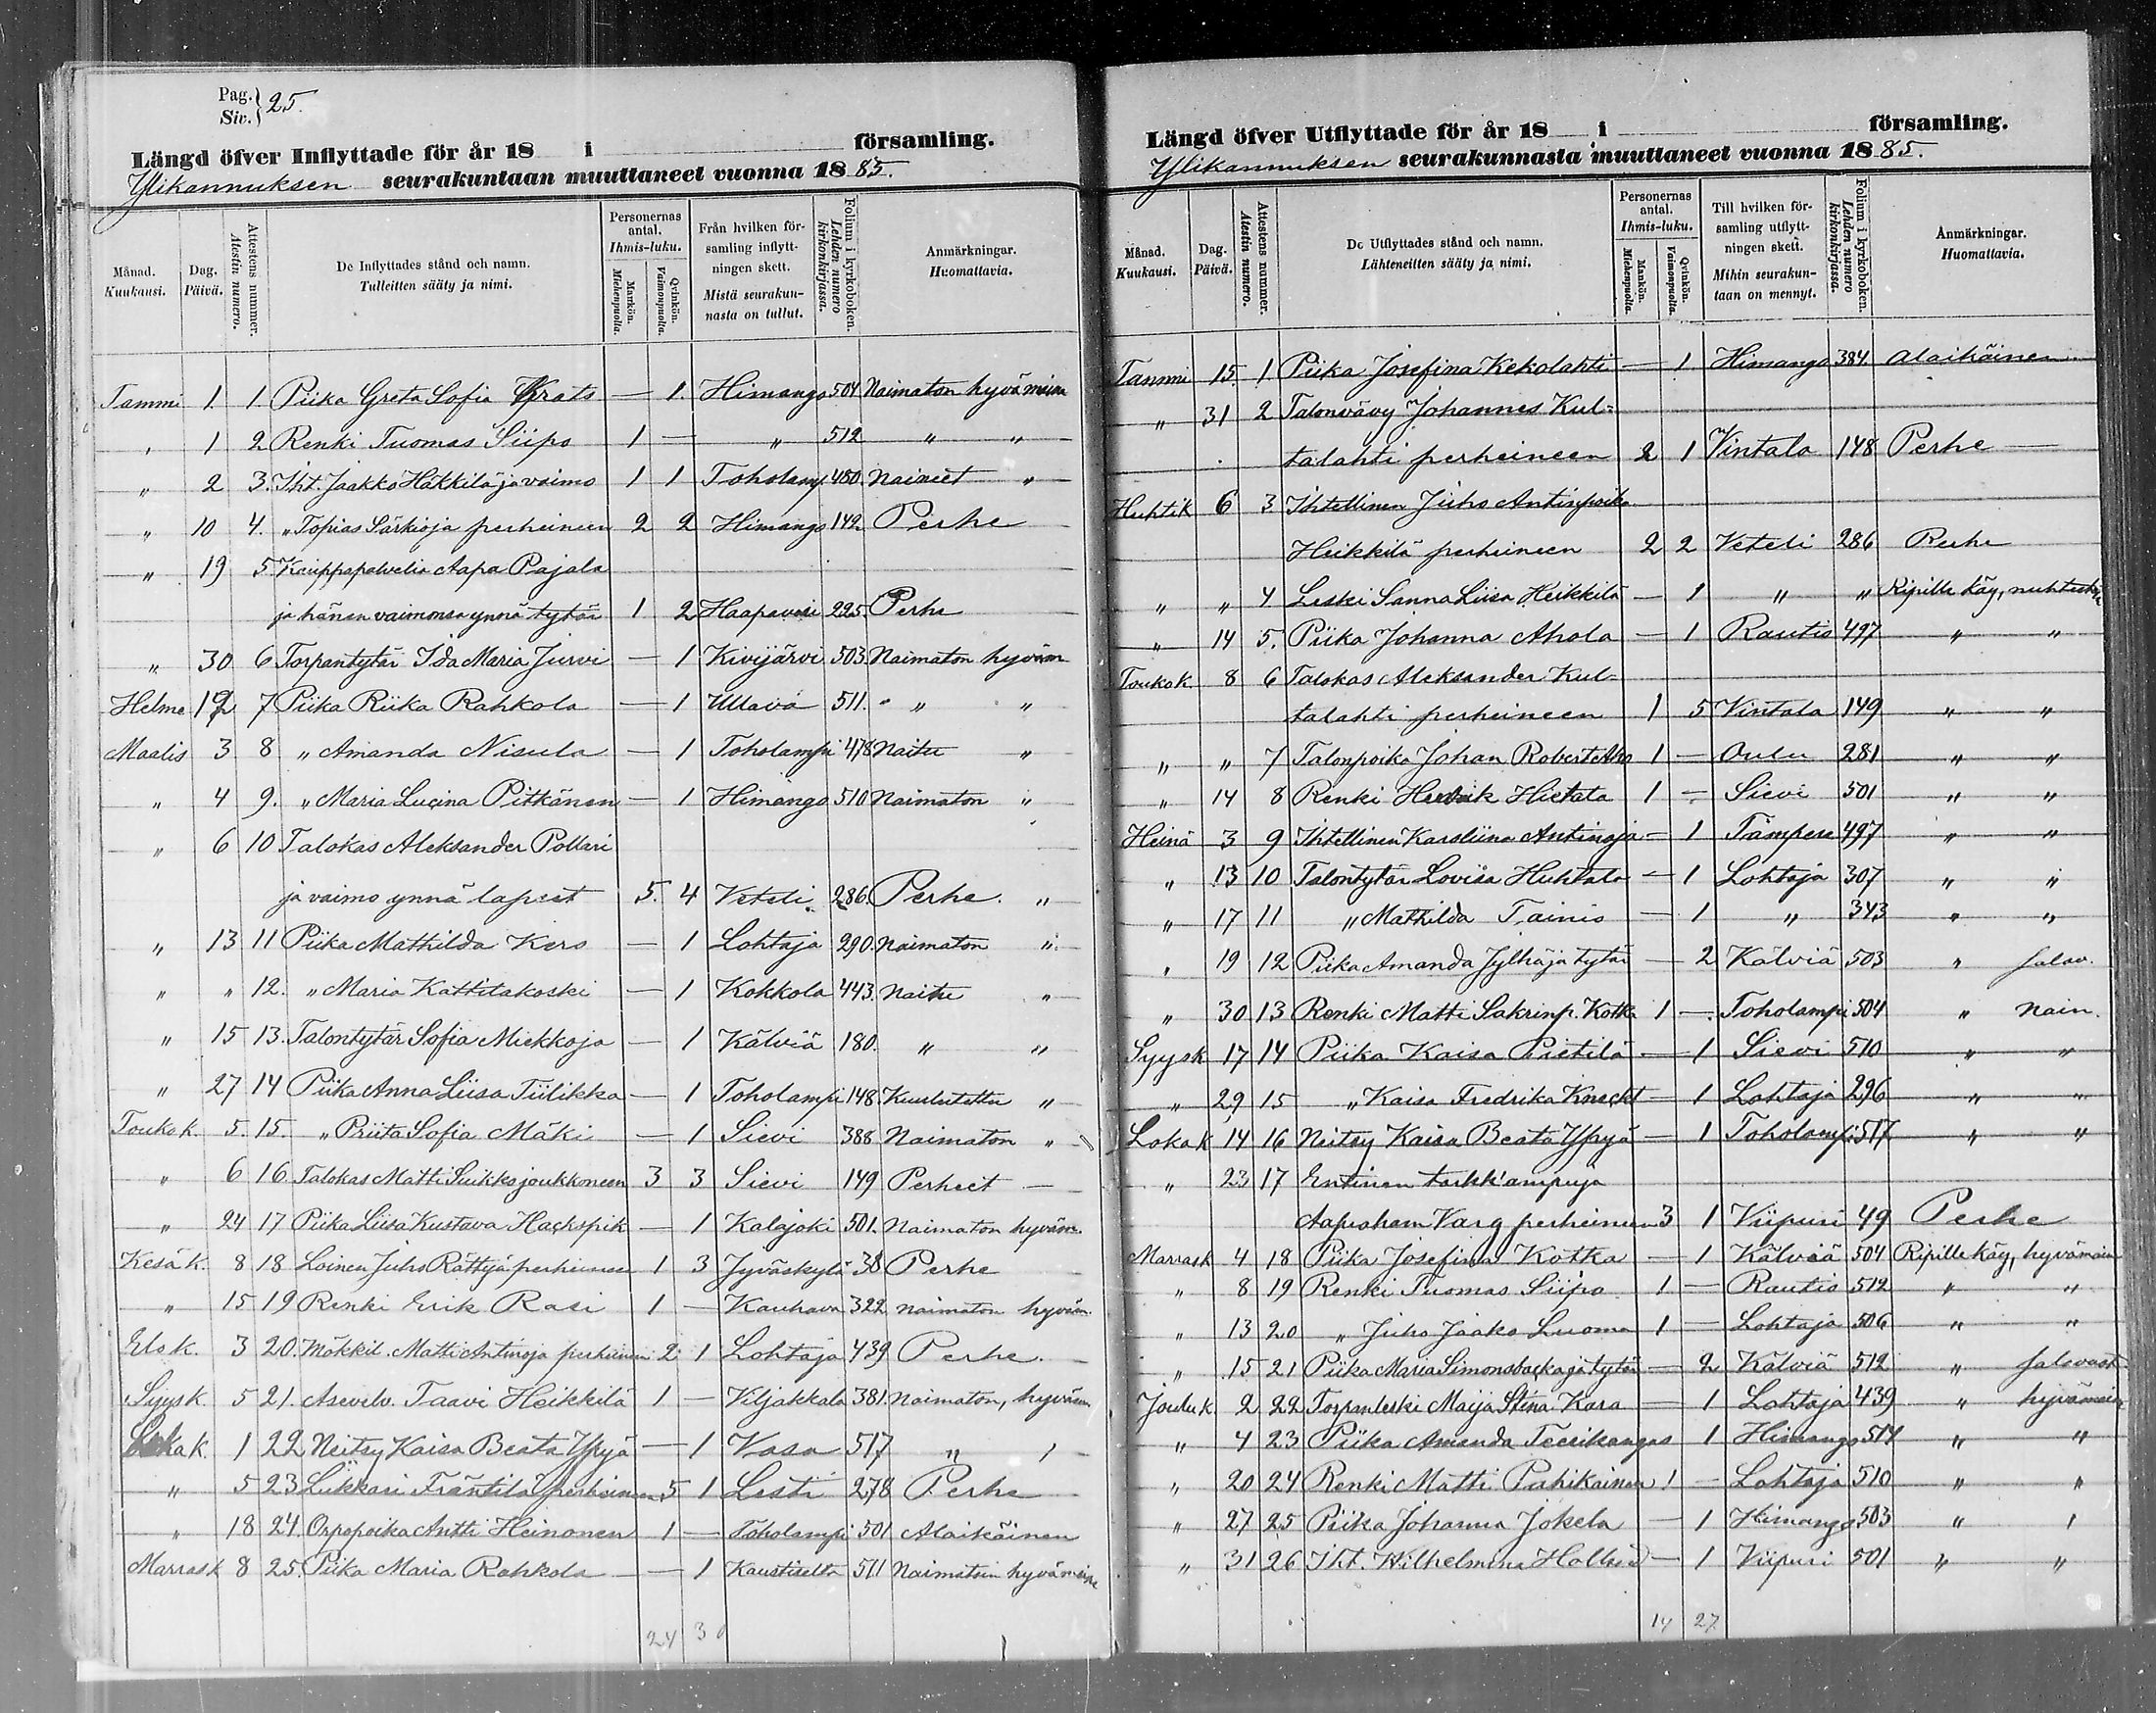 Pag. } 25.
Siv. }
Längd öfver Inflyttade för år 18 i församling.
Ylikannuksen seurakuntaan muuttaneet vuonna 1885.
Månad. Kuukausi. Dag. Päivä. Attestens nummer. Atestin numero. De Inflyttades stånd och namn. Tulleitten sääty ja nimi. Personernas antal. Ihmis-luku. Mankön. Miehenpuolta. Qvinkön. Vaimonpuolta. Från hvilken församling inflyttningen skett. Mistä seurakunnasta on tullut. Folium i kyrkoboken. Lehden numero kirkonkirjassa. Anmärkningar. Huomattavia.
Tammi 1. 1. Piika Greta Sofia Krats — 1. Himango 504 Naimaton hyvämain
„ 1 2 Renki Tuomas Siipo 1 — „ 512 „ „
„ 2 3. Iht. Jaakko Häkkilä ja vaimo 1 1 Toholamp 480. Naineet „
„ 10 4. „ Topias Särkioja perheineen 2 2 Himango 142 Perhe
„ 19 5 Kauppapalvelia Aapa Pajala
ja hänen vaimonsa ynnä tytär 1 2 Haapavesi 225. Perhe
„ 30 6 Torpantytär Ida Maria Jurvi — 1 Kivijärvi 503 Naimaton hyväm
Helme 12 7 Piika Riika Rahkola — 1 Ullava 511. „ „
Maalis 3 8 „ Amanda Nisula — 1 Toholampi 478 Naitu „
„ 4 9. „ Maria Lucina Pitkänen — 1 Himango 510 Naimaton „
„ 6 10 Talokas Aleksander Pollari
ja vaimo ynnä lapset 5. 4 Veteli 286. Perhe. „
„ 13 11 Piika Mathilda Kero — 1 Lohtaja 290. Naimaton „
„ „ 12. „ Maria Kattilakoski — 1 Kokkola 443. Naitu „
„ 15 13. Talontytär Sofia Miekkoja — 1 Kälviä 180. „ „
„ 27 14 Piika Anna Liisa Tiilikka — 1 Toholampi 148. Kuulutettu „
Toukok. 5. 15. „ Priita Sofia Mäki — 1 Sievi 388 Naimaton „
„ 6 16 Talokas Matti Suikko joukkoneen 3 3 Sievi 149 Perheet —
„ 24 17 Piika Liisa Kustava Hackspik — 1 Kalajoki 501. Naimaton hyväm.
Kesäk. 8 18 Loinen Juho Rättyä perheineen 1 3 Jyväskylä 38 Perhe
„ 15 19 Renki Erik Rasi 1 — Kauhava 322 naimaton hyväm.
Elok. 3 20. Mökkil. Matti Antinoja perheineen 2 1 Lohtaja 439 Perhe. —
Syysk. 5 21. Asevelv. Taavi Heikkilä 1 — Viljakkala 381. Naimaton, hyväm
Lokak. 1 22 Neitsy Kaisa Beata Ypyä — 1 Vasa 517 „ „
„ 5 23 Lukkari Fräntilä perheineen 5 1 Lesti 278 Perhe
„ 18 24 Orpopoika Antti Heinonen 1 — Toholampi 501 Alaikäinen
Marrask 8 25. Piika Maria Rahkola — 1 Kaustiselta 511 Naimatoin hyvämaine
24 30
Längd öfver Utflyttade för år 18 i församling.
Ylikannuksen seurakunnasta muuttaneet vuonna 1885.
Månad. Kuukausi. Dag. Päivä. Attestens nummer. Atestin numero. De Utflyttades stånd och namn. Lähteneitten sääty ja nimi. Personernas antal. Ihmis-luku. Mankön. Miehenpuolta. Qvinkön. Vaimonpuolta. Till hvilken församling utflyttningen skett. Mihin seurakuntaan on mennyt. Folium i kyrkoboken. Lehden numero kirkonkirjassa. Anmärkningar. Huomattavia.
Tammi 15. 1 Piika Josefina Kekolahti — 1 Himango 384. Alaikäinen
„ 31 2 Talonvävy Johannes Kul-
talahti perheineen 2 1 Vintala 148 Perhe —
Huhtik 6 3 Ihtellinen Juho Antinpoika
Heikkilä perheineen 2 2 Veteli 286 Perhe
„ „ 4 Leski Sanna Liisa Heikkilä — 1 „ „ Ripille käy,
„ 14 5. Piika Johanna Ahola — 1 Rautio 497 „ „
Toukok. 8 6 Talokas Aleksander Kul-
talahti perheineen 1 5 Vintala 149 „ „
„ „ 7 Talonpoika Johan Robert Aho 1 — Oulu 281 „ „
„ 14 8 Renki Hendrik Hietala 1 — Sievi 501 „ „
Heinä 3 9 Ihtellinen Karoliina Antinoja — 1 Tampere 497 „ „
„ 13 10 Talontytär Lovisa Huhtala — 1 Lohtaja 307 „ „
„ 17 11 „ Mathilda Tainio — 1 „ 343 „ „
„ 19 12 Piika Amanda Jylhä ja tytär — 2 Kälviä 503 „ salav.
„ 30 13 Renki Matti Sakrinp. Kotka 1 — Toholampi 504 „ Nain.
Syysk 17 14 Piika Kaisa Pietilä — 1 Sievi 510 „ „
„ 29 15 „ Kaisa Fredrika Kneckt — 1 Lohtaja 296 „ „
Lokak 14 16 Neitsy Kaisa Beata Ypyä — 1 Toholampi 517 „ „
„ 23 17 Entinen tarkk'ampuja
Aapraham Varg perheineen 3 1 Viipuri 49 Perhe
Marrask 4 18 Piika Josefina Kotka — 1 Kälviä 504 Ripille käy, hyvämain
„ 8 19 Renki Tuomas Siipo 1 — Rautio 512 „ „
„ 13 20 „ Juho Jaako Luoma 1 — Lohtaja 506 „ „
„ 15 21 Piika Maria Simonsbacka ja tytär — 2 Kälviä 512 „ salavuot
Jouluk 2 22 Torpanleski Maija Stina Kara — 1 Lohtaja 439 „ hyvämain
„ 4 23 Piika Amanda Teerikangas 1 Himango 514 „ „
„ 20 24 Renki Matti Pahikainen 1 — Lohtaja 510 „ „
„ 27 25 Piika Johanna Jokela — 1 Himango 503 „ „
„ 31 26 Iht. Wilhelmina — 1 Viipuri 501 „ „
14 27